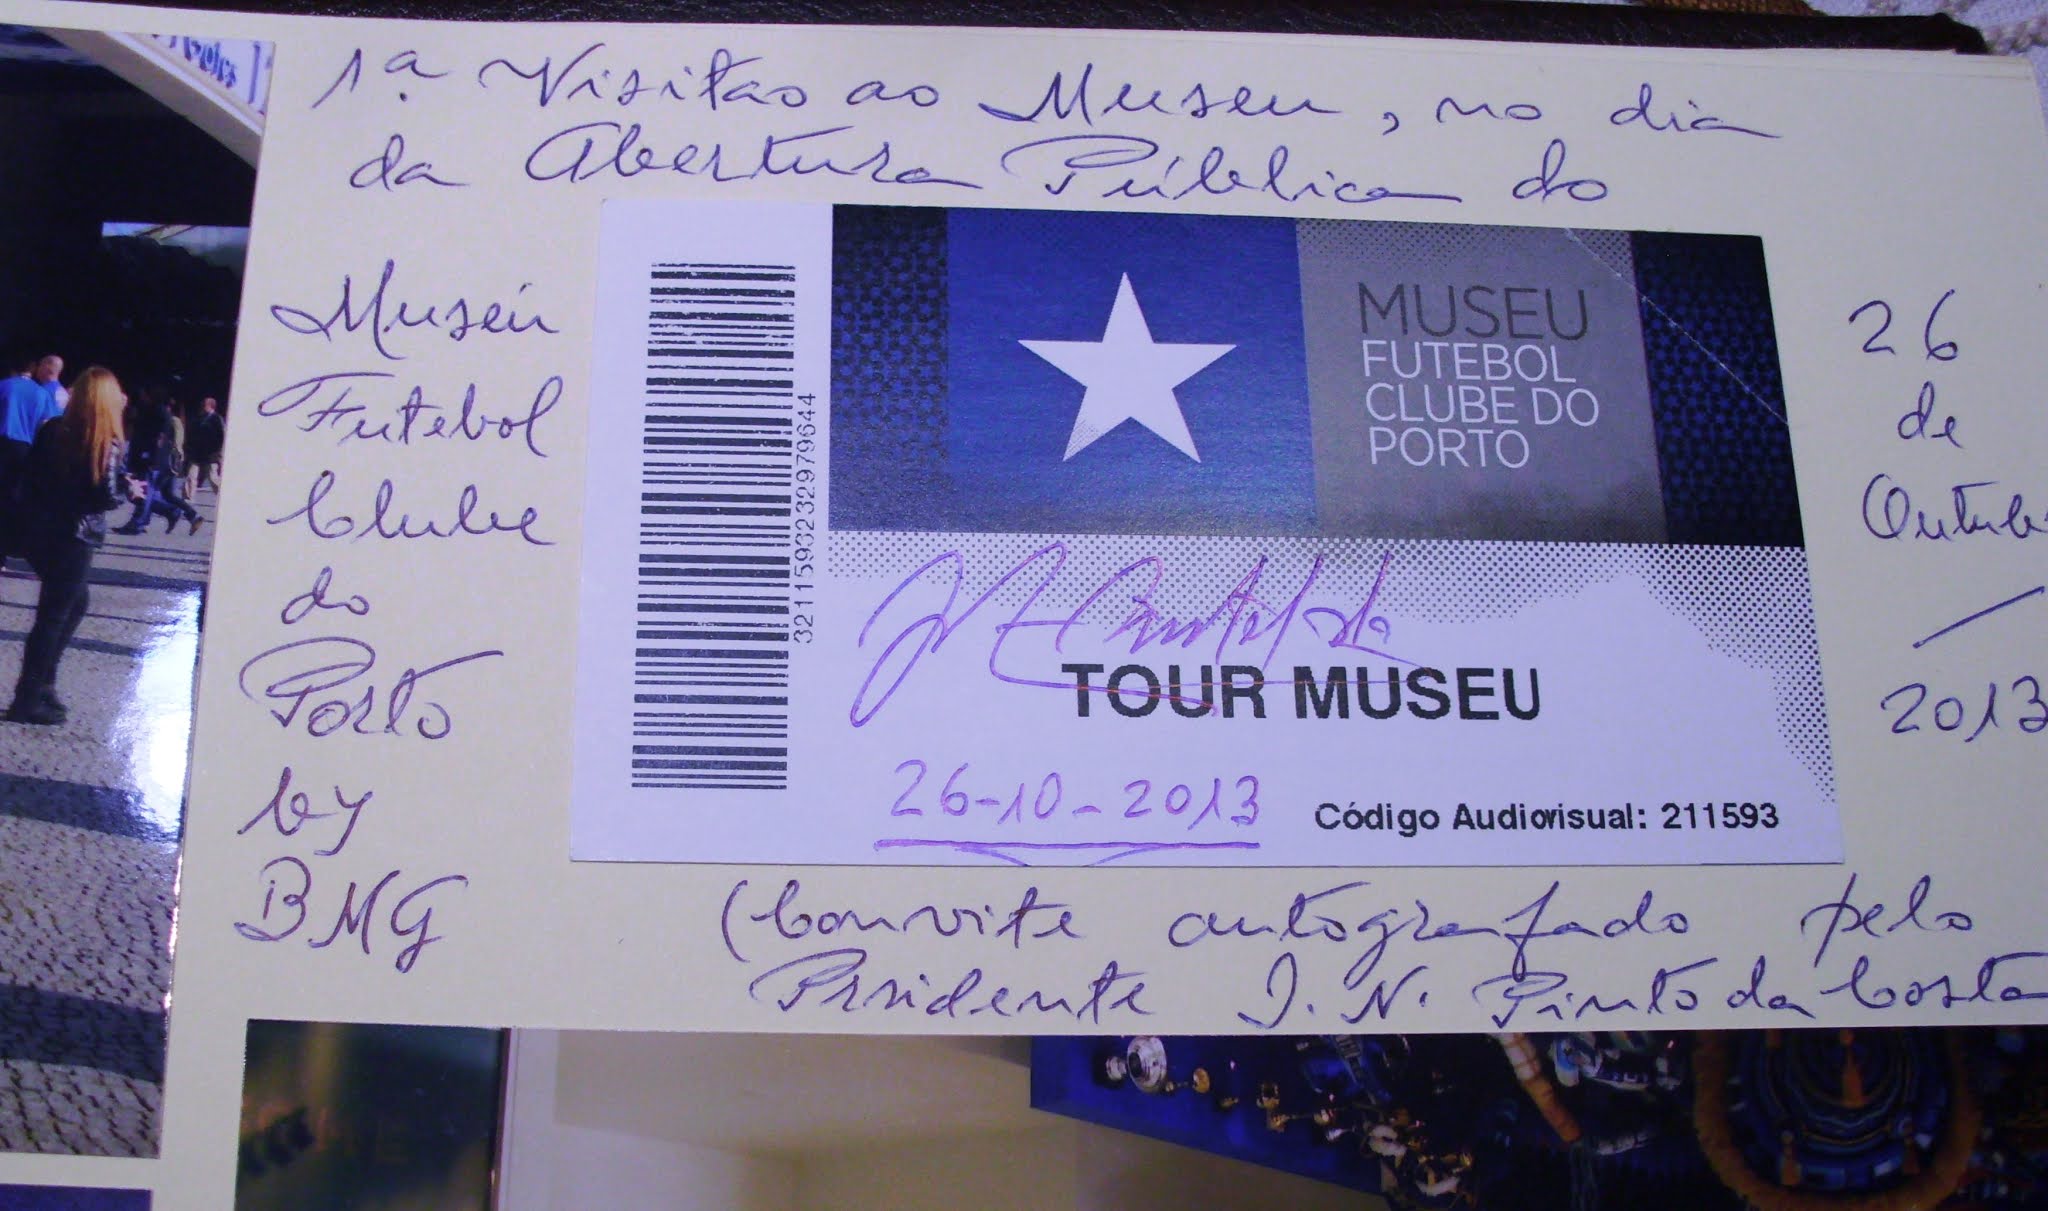 1ª Visitas ao Museu, no dia
da Abertura Pública do
Museu
Futebol
Clube
do
Porto
by
BMG
26
de
Outub
/
2013
MUSEU
FUTEBOL
CLUBE DO
PORTO
3211593232979644
TOUR MUSEU
26-10-2013
Código Audiovisual: 211593
(Convite autografado pelo
Presidente J. N. Pinto da Costa